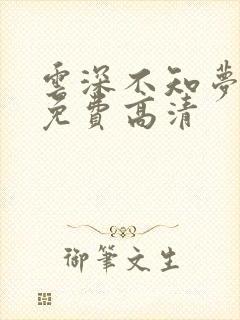 雲深不知夢
免費高清
御筆文生